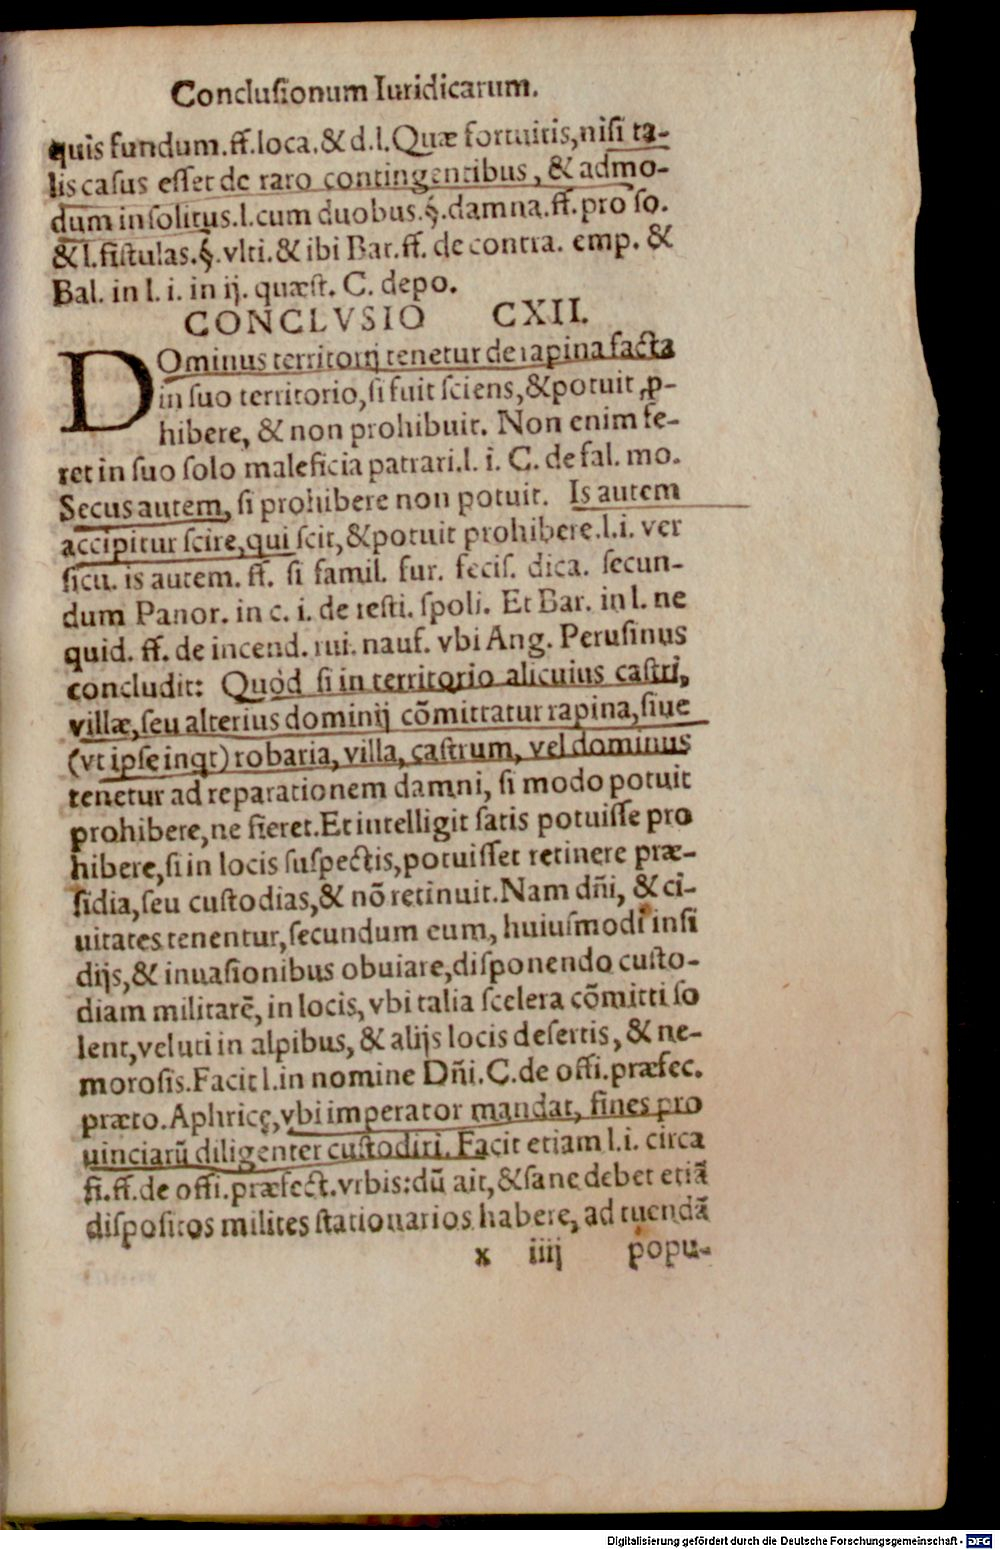 Conclusionum Iuridicarum.
quis fundum.ff.loca.& d.l.Quæ fortuitis,nisi ta-
lis casus esset de raro contingentibus, & admo-
dum insolitus.l.cum duobus.§.damna.ff.pro so.
& l.fistulas.§.vlti.& ibi Bar.ff.de contra. emp. &
Bal. in l. i. in ij. quæst. C. depo.
CONCLVSIO CXII.
DOminus territorij tenetur de rapina facta
in suo territorio,si fuit sciens,& potuit ꝓ-
hibere, & non prohibuit. Non enim fe-
ret in suo solo maleficia patrari.l. i. C. de fal. mo.
Secus autem, si prohibere non potuit. Is autem
accipitur scire,qui scit,& potuit prohibere.l.i. ver
sicu. is autem. ff. si famil. fur. fecis. dica. secun-
dum Panor. in c. i. de resti. spoli. Et Bar. in l. ne
quid. ff. de incend. rui. nauf. vbi Ang. Perusinus
concludit: Quòd si in territorio alicuius castri,
villæ,seu alterius dominij cõmittatur rapina,siue
(vt ipse inqt) robaria, villa, castrum, vel dominus
tenetur ad reparationem damni, si modo potuit
prohibere,ne fieret.Et intelligit satis potuisse pro
hibere,si in locis suspectis,potuisset retinere præ-
sidia,seu custodias,& nõ retinuit.Nam dñi, & ci-
uitates tenentur,secundum eum, huiusmodi insi
dijs,& inuasionibus obuiare,disponendo custo-
diam militarẽ, in locis, vbi talia scelera cõmitti so
lent,veluti in alpibus, & alijs locis desertis, & ne-
morosis.Facit l.in nomine Dñi.C.de offi.præfec.
præto.Aphricę,vbi imperator mandat, fines pro
uinciarũ diligenter custodiri. Facit etiam l.i. circa
fi.ff.de offi.præfect.vrbis:dũ ait,& sane debet etiã
dispositos milites stationarios habere, ad tuendã
x iiij popu-
Digitalisierung gefördert durch die Deutsche Forschungsgemeinschaft - DFG